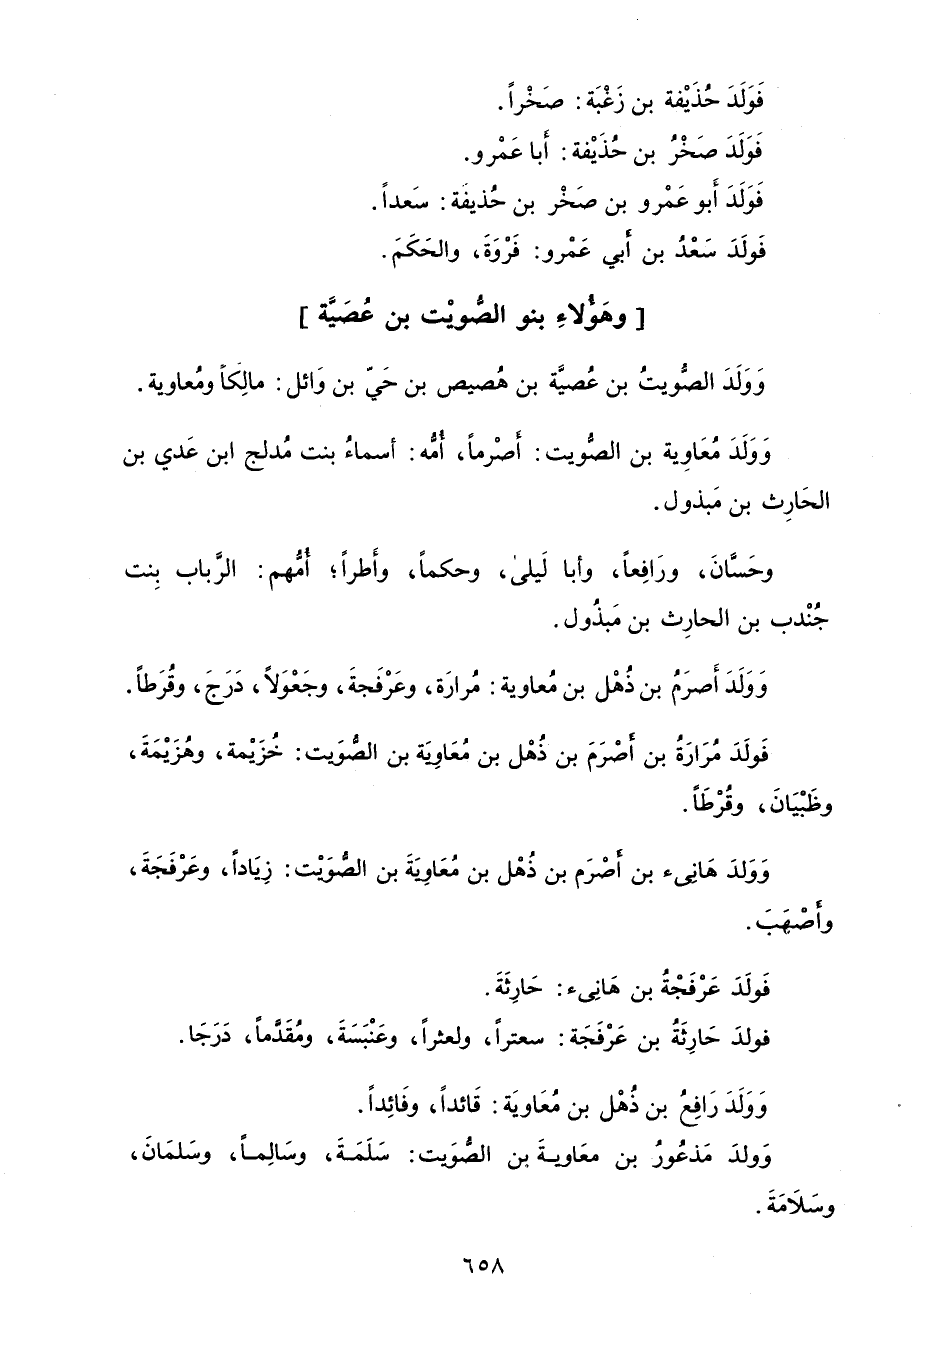 فَوَلَدَ حُذَيْفة بن زَغْبَة: صَخْراً.
فَوَلَدَ صَخْرُ بن حُذَيْفة: أَبا عَمْرو.
فَوَلَدَ أَبو عَمْرو بن صَخْر بن حُذيفَة: سَعداً.
فَولَدَ سَعْدُ بن أَبي عَمْرو: فَرْوَةَ، والحَكَمَ.
[ وهَؤُلاءِ بنو الصُّويْت بن عُصَيَّة ]
وَوَلَدَ الصُّويتُ بن عُصيَّة بن هُصيص بن حَيّ بن وَائل: مالِكاً ومُعاوية.
وَوَلَدَ مُعَاوِية بن الصُّويت: أَصْرماً، أُمُّه: أسماءُ بنت مُدلج ابن عَدي بن
الحَارِث بن مَبذول.
وحَسَّانَ، ورَافِعاً، وأبا لَيلىٰ، وحكماً، وأَطراً؛ أُمُّهم: الرَّباب بِنت
جُنْدب بن الحارِث بن مَبذُول.
وَوَلَدَ أَصرَمُ بن ذُهْل بن مُعاوية: مُرارَة، وعَرْفَجةَ، وجَعْوَلاً، دَرَجَ، وقُرَطاً.
فَولَدَ مُرَارَةُ بن أَصْرَمَ بن ذُهْل بن مُعَاوِيَة بن الصُّوَيت: خُزَيْمة، وهُزَيْمَةَ،
وظَبْيَانَ، وقُرْطَاً.
وَوَلدَ هَانِىء بن أَصْرَم بن ذُهْل بن مُعَاوِيَةَ بن الصُّوَيْت: زِيَاداً، وعَرْفَجَةَ،
وأَصْهَبَ.
فَولَدَ عَرْفَجْةُ بن هَانِىء: حَارِثَةَ.
فولدَ حَارِثَةُ بن عَرْفَجَة: سعتراً، ولعثراً، وعَنْبَسَةَ، ومُقَدَّماً، دَرَجَا.
وَوَلَدَ رَافِعُ بن ذُهْل بن مُعَاويَة: قَائداً، وفَائِداً.
وَولدَ مَذعُورُ بن معَاويةَ بن الصُّوَيت: سَلَمَةَ، وسَالِماً، وسَلمَانَ،
وسَلَامَةَ.
٦٥٨